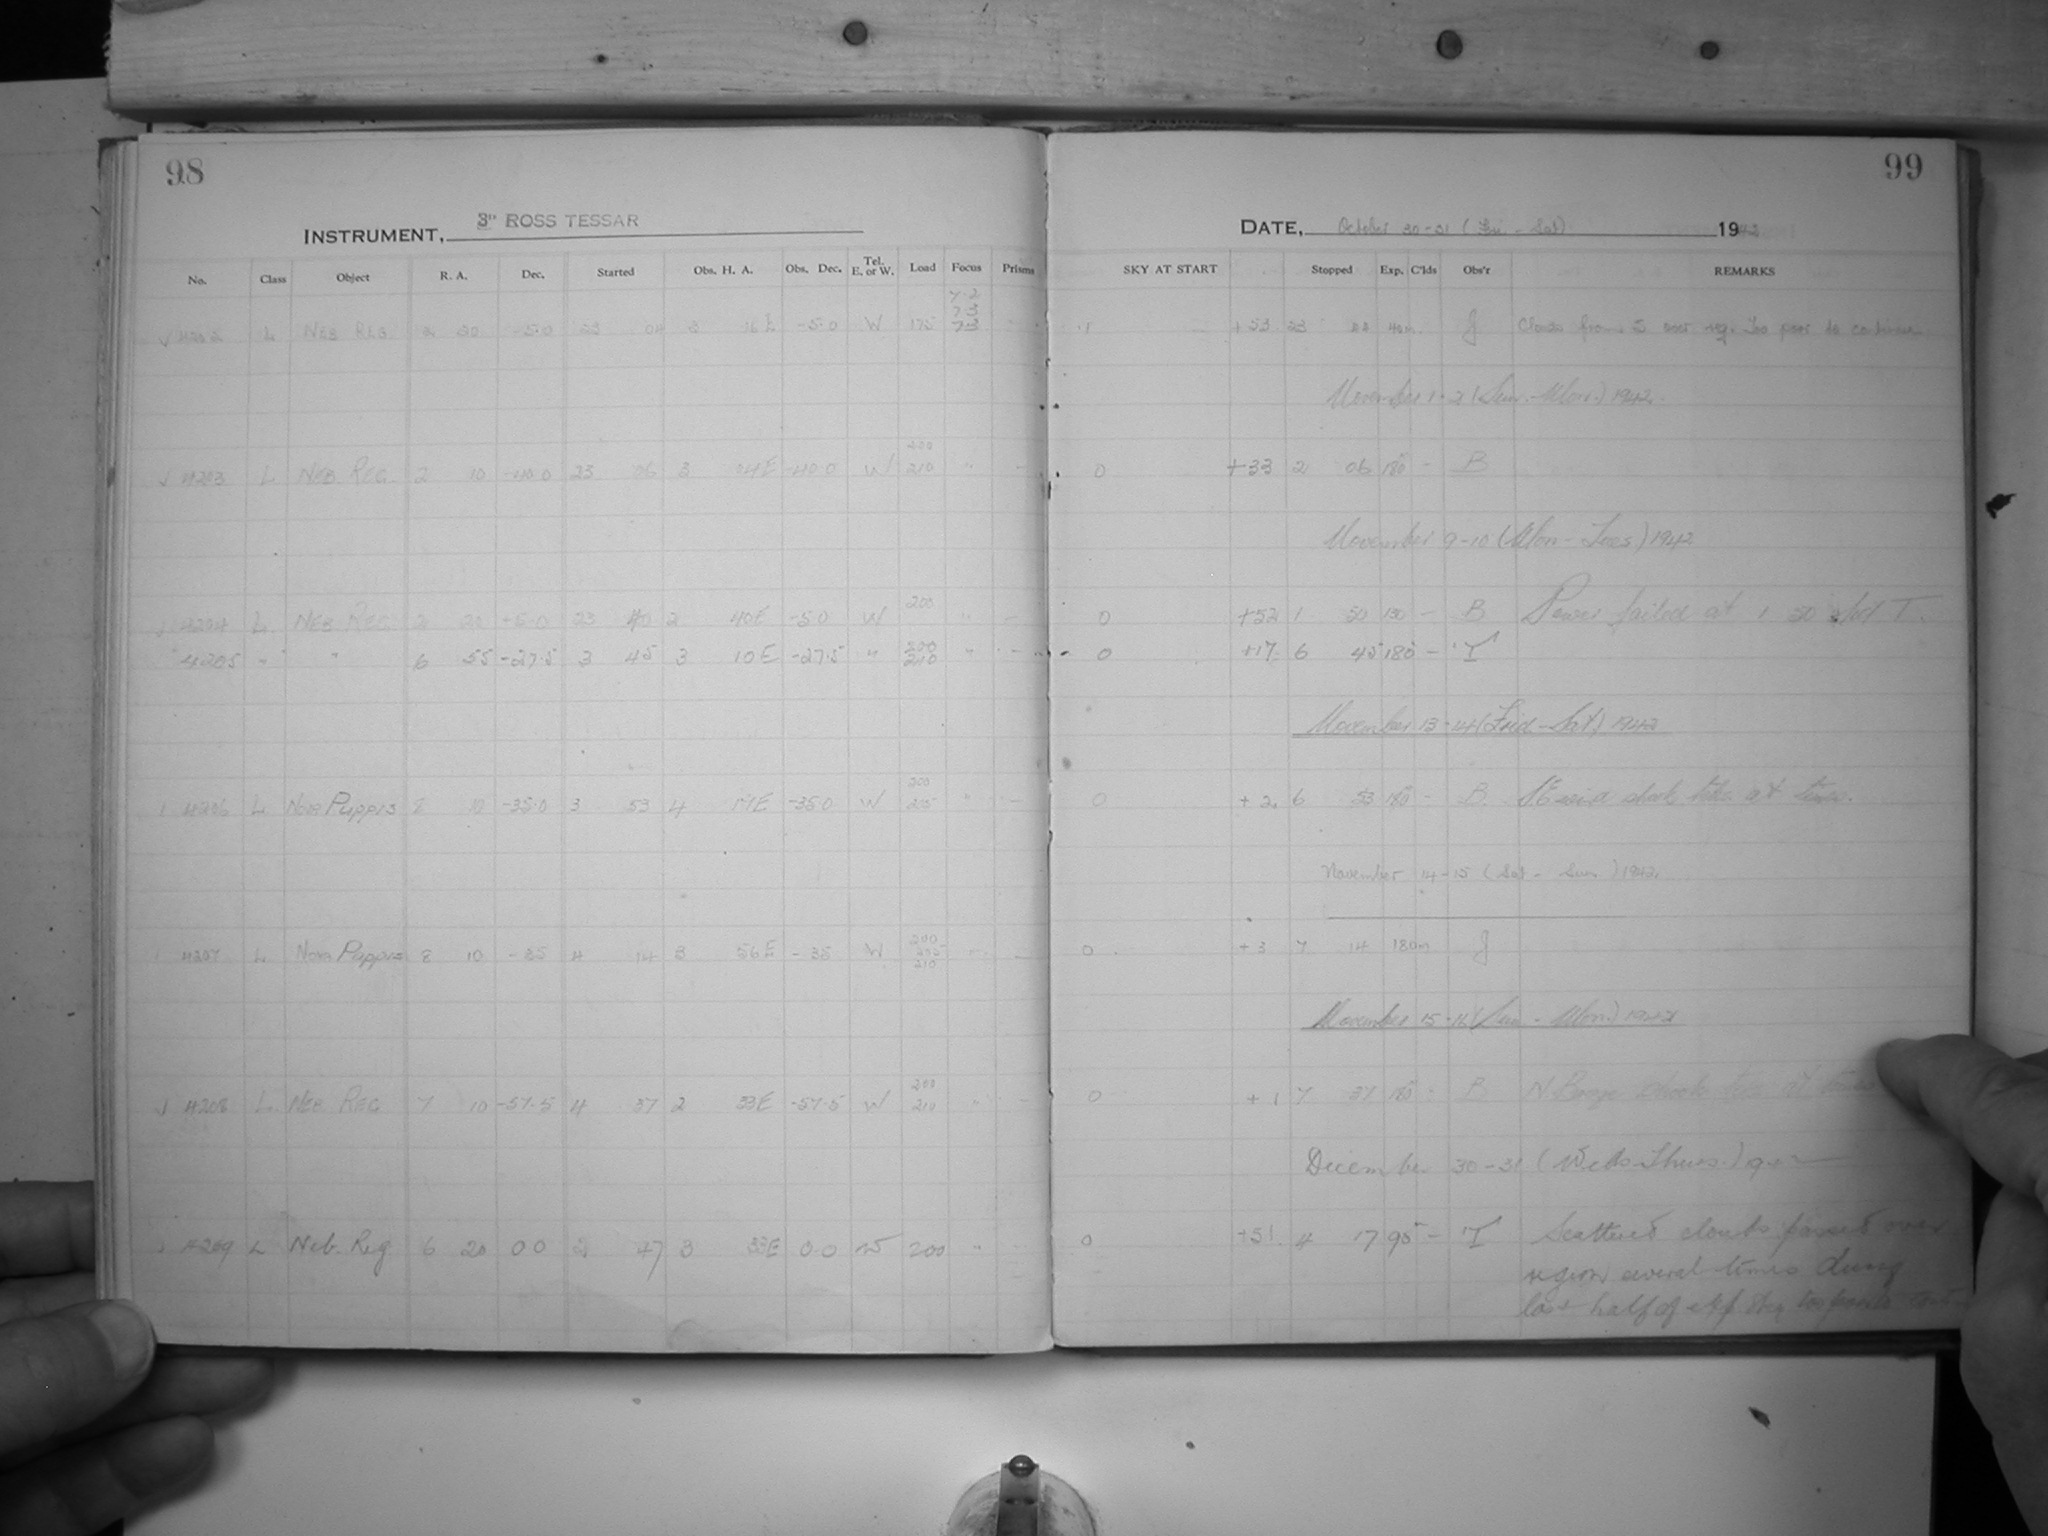 98
INSTRUMENT, 3" ROSS TESSAR
No. Class Object R. A. Dec. Started Obs. H. A. Obs. Dec. Tel. E. or W. Load Focus Prisms
7.2
7.3
√ 4202 L NEB REG 2 20 -5.0 23 04 3 16E -5.0 W 175 7.3
200
√ 4203 L NEB. REG. 2 10 -40.0 23 06 3 04E -40.0 W 210 " -
200
√ 4204 L NEB REG. 2 20 -5.0 23 40 2 40E -5.0 W " -
" 4205 " " 6 55 -27.5 3 45 3 10E -27.5 " 200 " -
210
200
4206 L Nova Puppis 8 10 -35.0 3 53 4 17E -35.0 W 205 " -
200
4207 L Nova Puppis 8 10 -35 4 14 3 56E -35 W 205 " -
210
200
√ 4208 L NEB REG 7 10 -57.5 4 37 2 33E -57.5 W 210 " -
4209 L Neb. Reg 6 20 00 2 47 3 33E 0.0 W 200 " -
99
DATE, October 30-31 (Fri - Sat) 1942
SKY AT START Stopped Exp. C'lds Obs'r REMARKS
1 +53 23 40m J Clouds from S over reg. Too poor to continue
November 1-2 (Sun.-Mon.) 1942.
0 +33 2 06 180 - B
November 9-10 (Mon - Tues) 1942
0 +52 1 50 130 - B Power failed at 1 50 Std T.
0 +17 6 45 180 - T
November 13-14 (Frid - Sat) 1942
0 +2 6 53 180 - B SE wind shook tube at times.
November 14-15 (Sat - Sun) 1942.
0 +3 7 14 180m J
November 15-16 (Sun - Mon.) 1942
0 +1 7 37 180 - B N. Breeze shook tube at times
December 30-31 (Wed-Thurs.)
0 +51 4 17 90 - T Scattered clouds passed over
region several times during
last half of exp